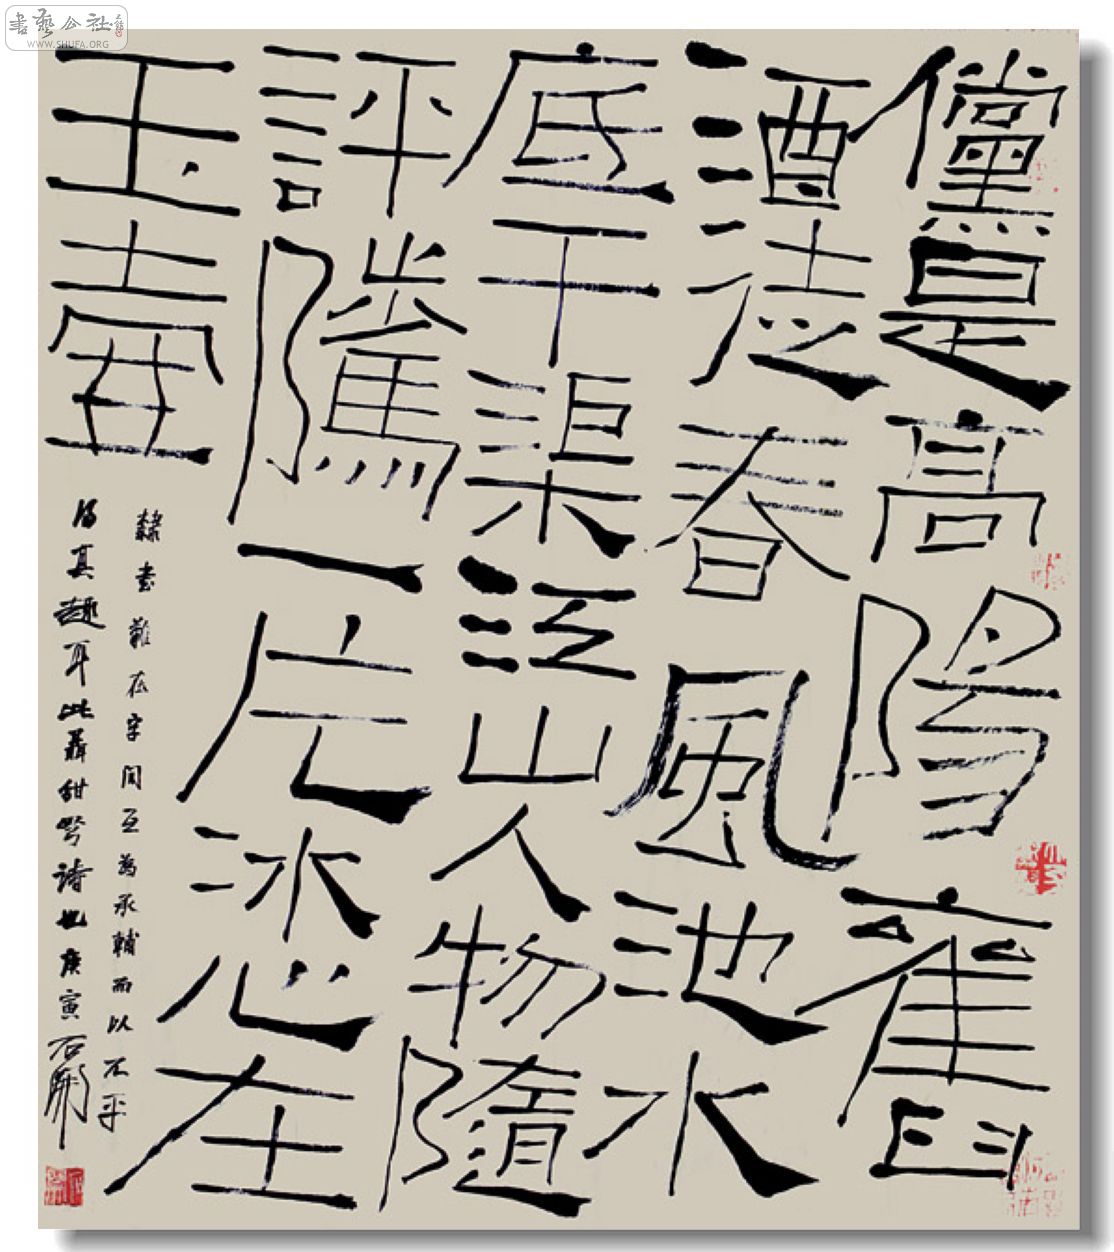 書藝公社
WWW.SHUFA.ORG
儻是高陽舊
酒徒春風池水
底干渠江山人物隨
評騭一片冰心在
玉壺
隸書難在字間互為承輔而以不平
得其趣耳此聶紺弩詩也庚寅石開